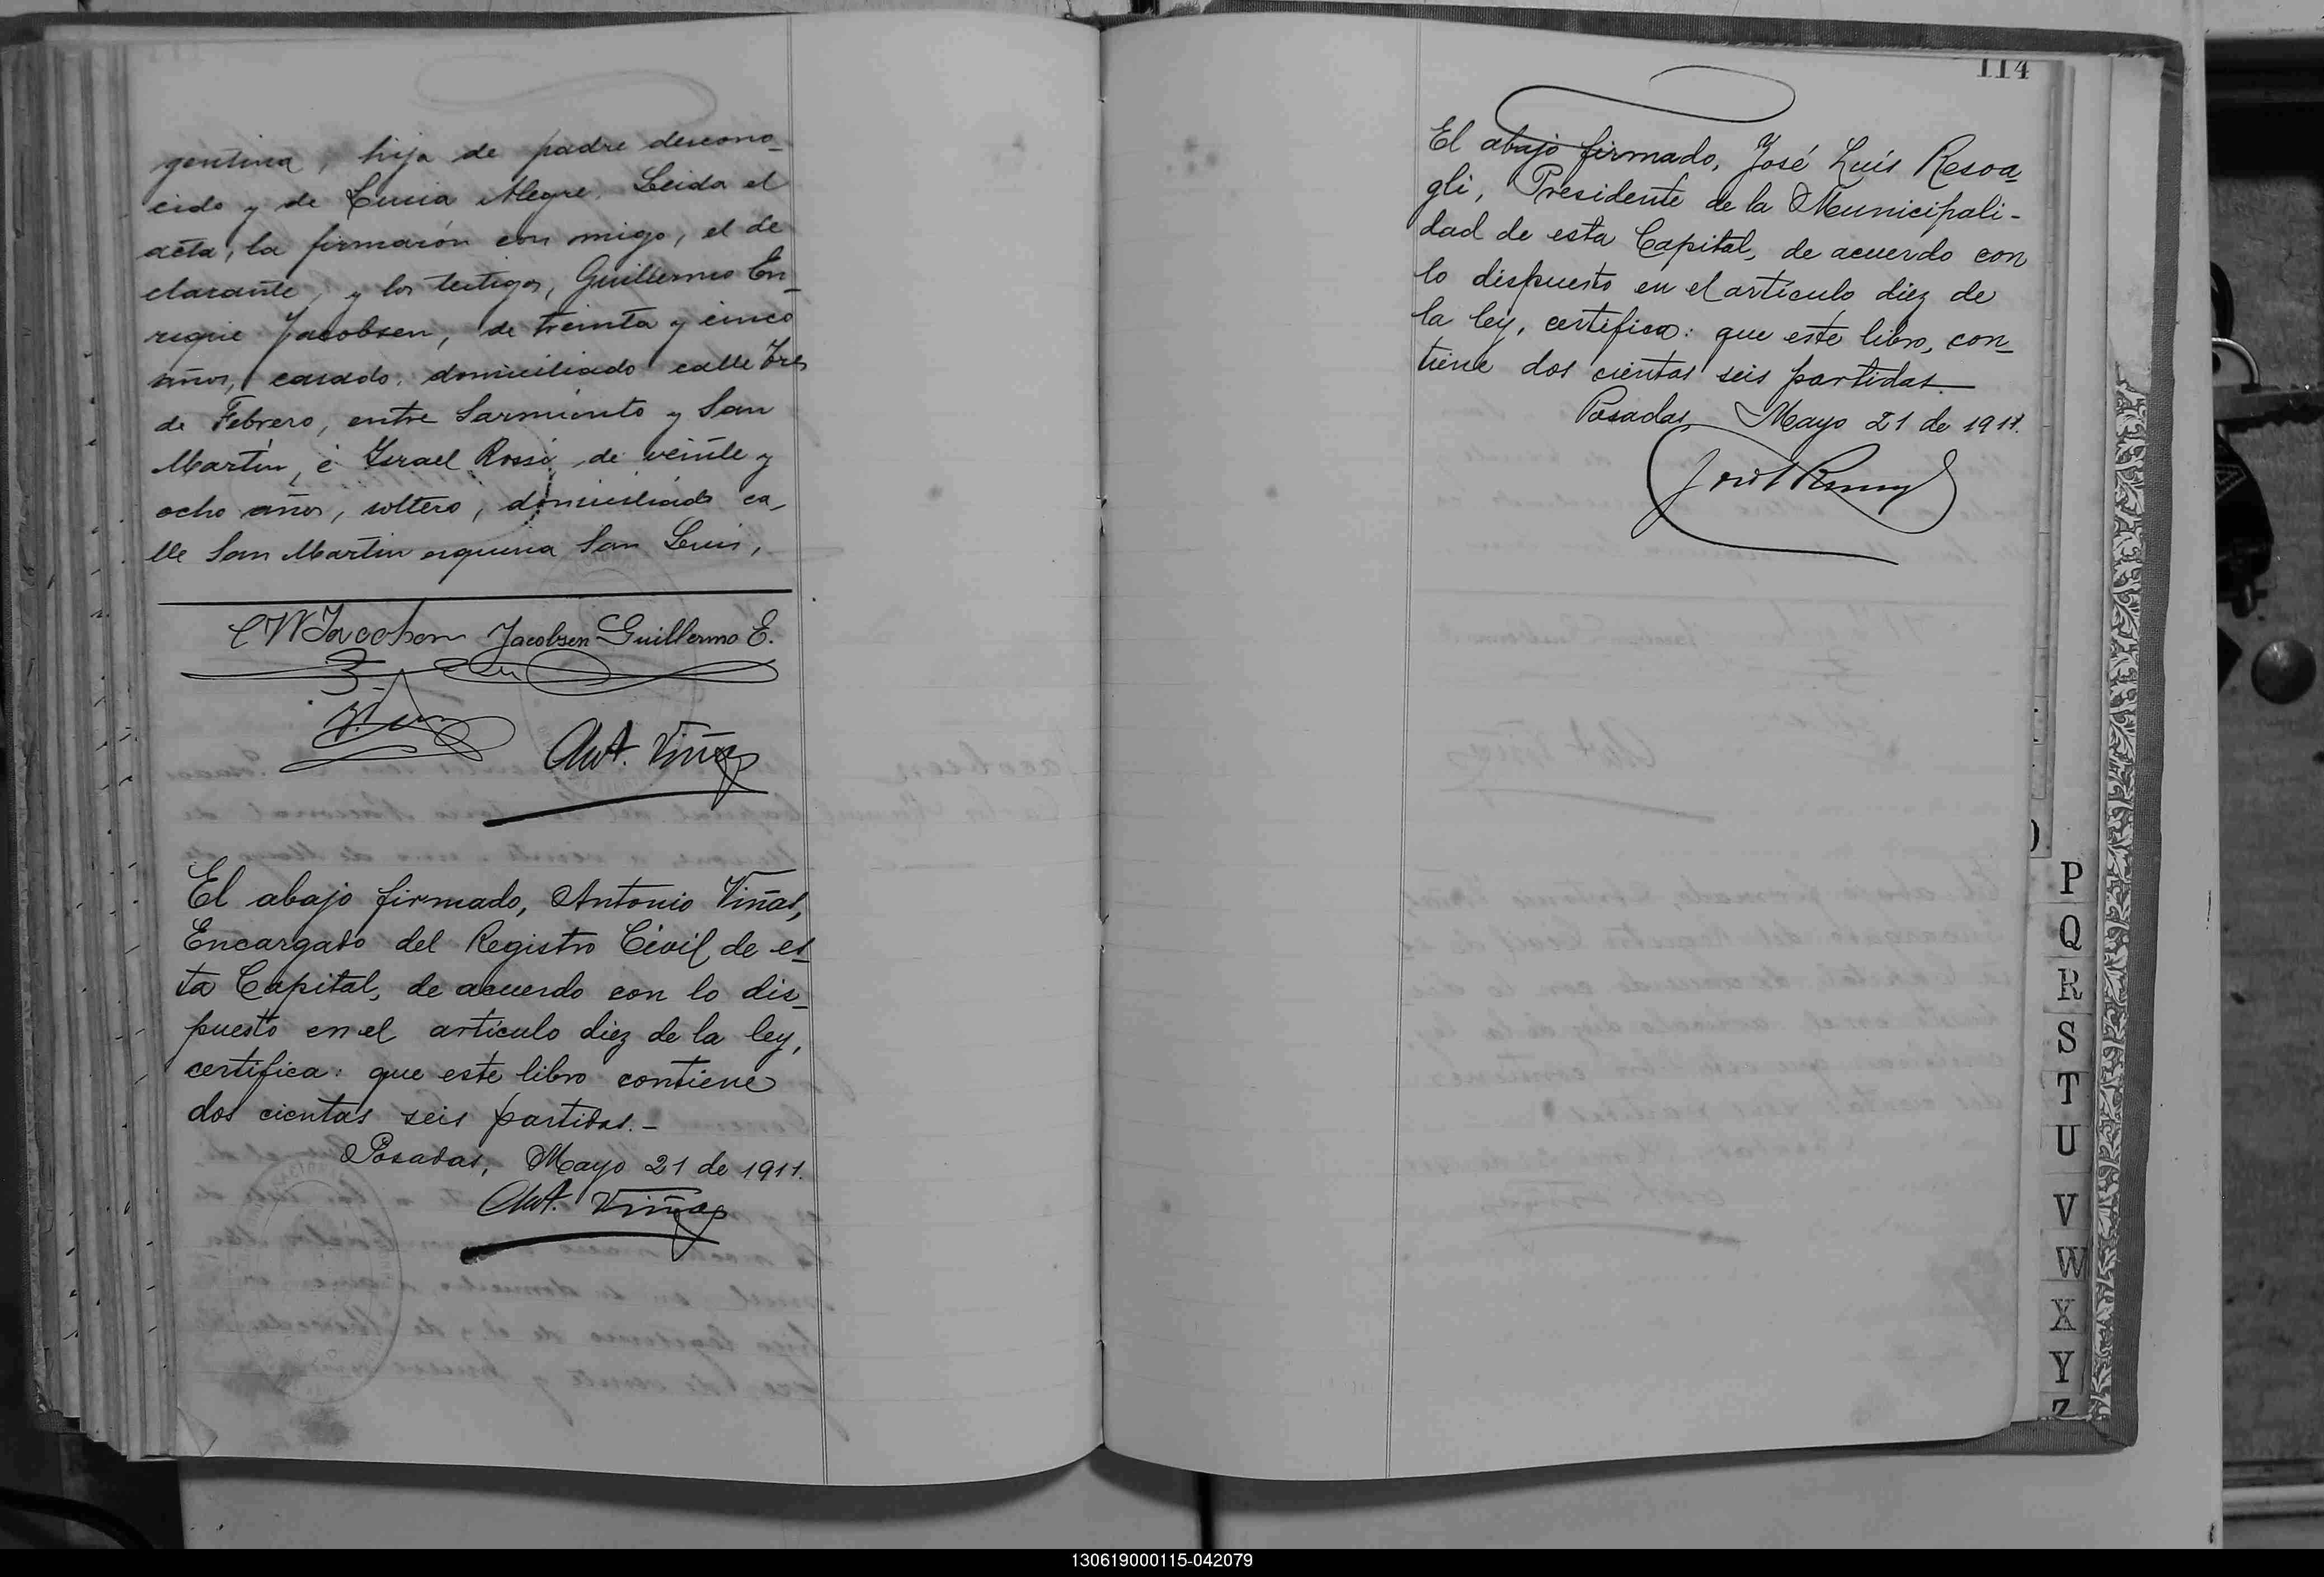 gentina, hija de padre descono_
cido y de Lucia Alegre. Leida el
acta, la firmarón con migo, el de
clarante, y los testigos, Guillermo En_
rique Jacobsen, de treinta y cinco
años, casado, domiciliado calle Tres
de Febrero, entre Sarmiento y San
Martín, é Israel Rossi de veinte y
ocho años, soltero, domiciliado ca_
lle San Martin esquina San Luis,
CW Jacobsen Jacobsen Guillermo E.
Ant. Viñas
El abajo firmado, Antonio Viñas,
Encargado del Registro Civil de es_
ta Capital, de acuerdo con lo dis_
puesto en el artículo diez de la ley,
certifica: que este libro contiene
dos cientas seis partidas.-
Posadas, Mayo 21 de 1911.
Ant. Viñas
114
El abajo firmado, José Luís Resoa_
gli, Presidente de la Municipali-
dad de esta Capital, de acuerdo con
lo dispuesto en el artículo diez de
la ley, certifica: que este libro, con_
tiene dos cientas seis partidas
Posadas, Mayo 21 de 1911.
P
Q
R
S
T
U
V
W
X
Y
Z
130619000115-042079